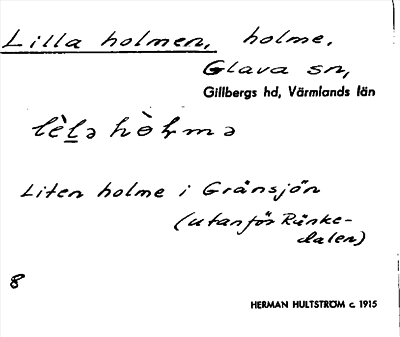 Lilla holmen, holme.
Glava sn,
Gillbergs hd, Värmlands län
lèlə hòlmə
Liten holme i Gränsjön
(utanför Rünke-
dalen)
8
HERMAN HULTSTRÖM c. 1915